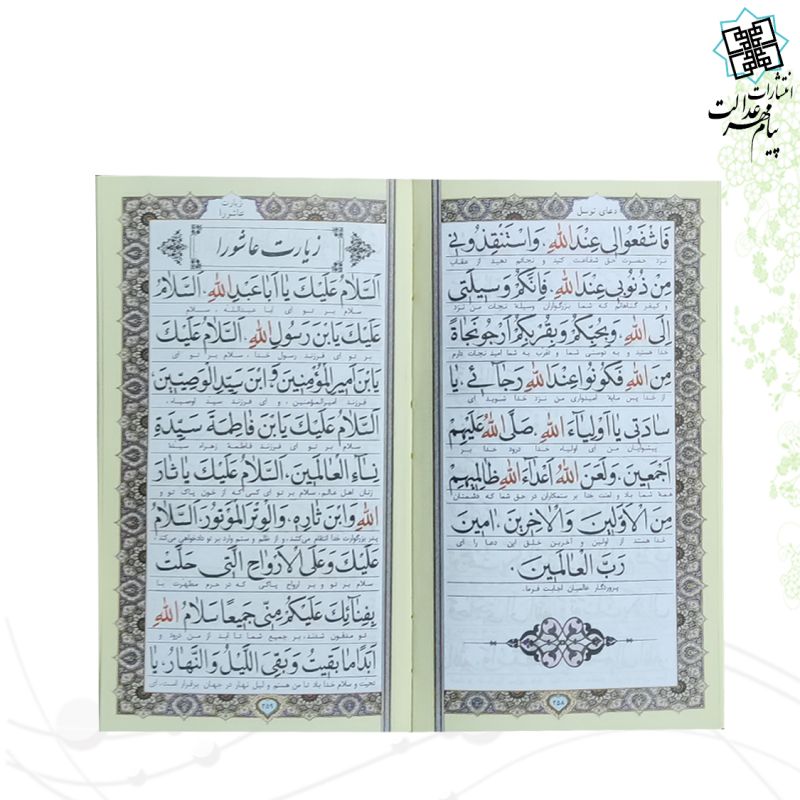 انتشارات
پیام مهر عدالت
دعای توسل
فَاشْفَعُوا لِي عِنْدَ اللّٰهِ، وَاسْتَنْقِذُونِي
نزد حضرت حق شفاعت کنید و نجاتم دهید از عقاب
مِنْ ذُنُوبِي عِنْدَ اللّٰهِ، فَاِنَّكُمْ وَسيلَتي
و کیفر گناهانم که شما بزرگواران وسیله نجات من نزد
اِلَى اللّٰهِ، وَبِحُبِّكُمْ وَبِقُرْبِكُمْ اَرْجُو نَجاةً
خدا هستید و به دوستی شما و تقرب به شما امید نجات دارم
مِنَ اللّٰهِ فَكُونُوا عِنْدَ اللّٰهِ رَجائي، يا
از خدا پس مایه امیدواری من نزد خدا شوید ای
سادَتي يا اَوْلِياءَ اللّٰهِ، صَلَّى اللّٰهُ عَلَيْهِمْ
پیشوایان من ای اولیاء خدا درود خدا بر
اَجْمَعينَ، وَلَعَنَ اللّٰهُ اَعْداءَ اللّٰهِ ظالِميهِمْ
همه شما باد و لعنت خدا بر ستمکاران در حق شما که دشمنان
مِنَ الْاَوَّلينَ وَالْاٰخِرينَ، امينَ
خدا هستند از اولین و آخرین خلق این دعا را ای
رَبَّ الْعالَمينَ.
پروردگار عالمیان اجابت فرما.
۲۵۸
زیارت
عاشورا
زیارت عاشورا
اَلسَّلامُ عَلَيْكَ يا اَبا عَبْدِ اللّٰهِ، اَلسَّلامُ
سلام بر تو ای ابا عبدالله، سلام
عَلَيْكَ يَا بْنَ رَسُولِ اللّٰهِ، اَلسَّلامُ عَلَيْكَ
بر تو ای فرزند رسول خدا، سلام بر تو ای
يَابْنَ اَميرِ الْمُؤْمِنينَ وَ ابْنَ سَيِّدِ الْوَصِيّينَ،
فرزند امیرالمؤمنین، و ای فرزند سید اوصیاء،
اَلسَّلامُ عَلَيْكَ يَا بْنَ فاطِمَةَ سَيِّدَةِ
سلام بر تو ای فرزند فاطمه زهراء سیده
نِساءِ الْعالَمينَ، اَلسَّلامُ عَلَيْكَ يا ثارَ
زنان اهل عالم، سلام بر تو ای کسی که از خون پاک تو و
اللّٰهِ وَابْنَ ثارِهِ، وَالْوِتْرَ الْمَوْتُورَ، اَلسَّلامُ
پدر بزرگوارت خدا انتقام می‌کشد، و از ظلم و ستم وارد بر تو دادخواهی می‌کند
عَلَيْكَ وَعَلَى الْاَرْواحِ الَّتي حَلَّتْ
سلام بر تو و بر ارواح پاکی که در حرم مطهرت با
بِفِنائِكَ عَلَيْكُمْ مِنّي جَميعًا سَلامُ اللّٰهِ
تو مدفون شدند، بر جمیع شما تا ابد از من درود و
اَبَدًا ما بَقيتُ وَ بَقِيَ اللَّيْلُ وَالنَّهارُ، يا
تحیت و سلام خدا باد تا من هستم و لیل نهار در جهان برقرار است، ای
۲۵۹